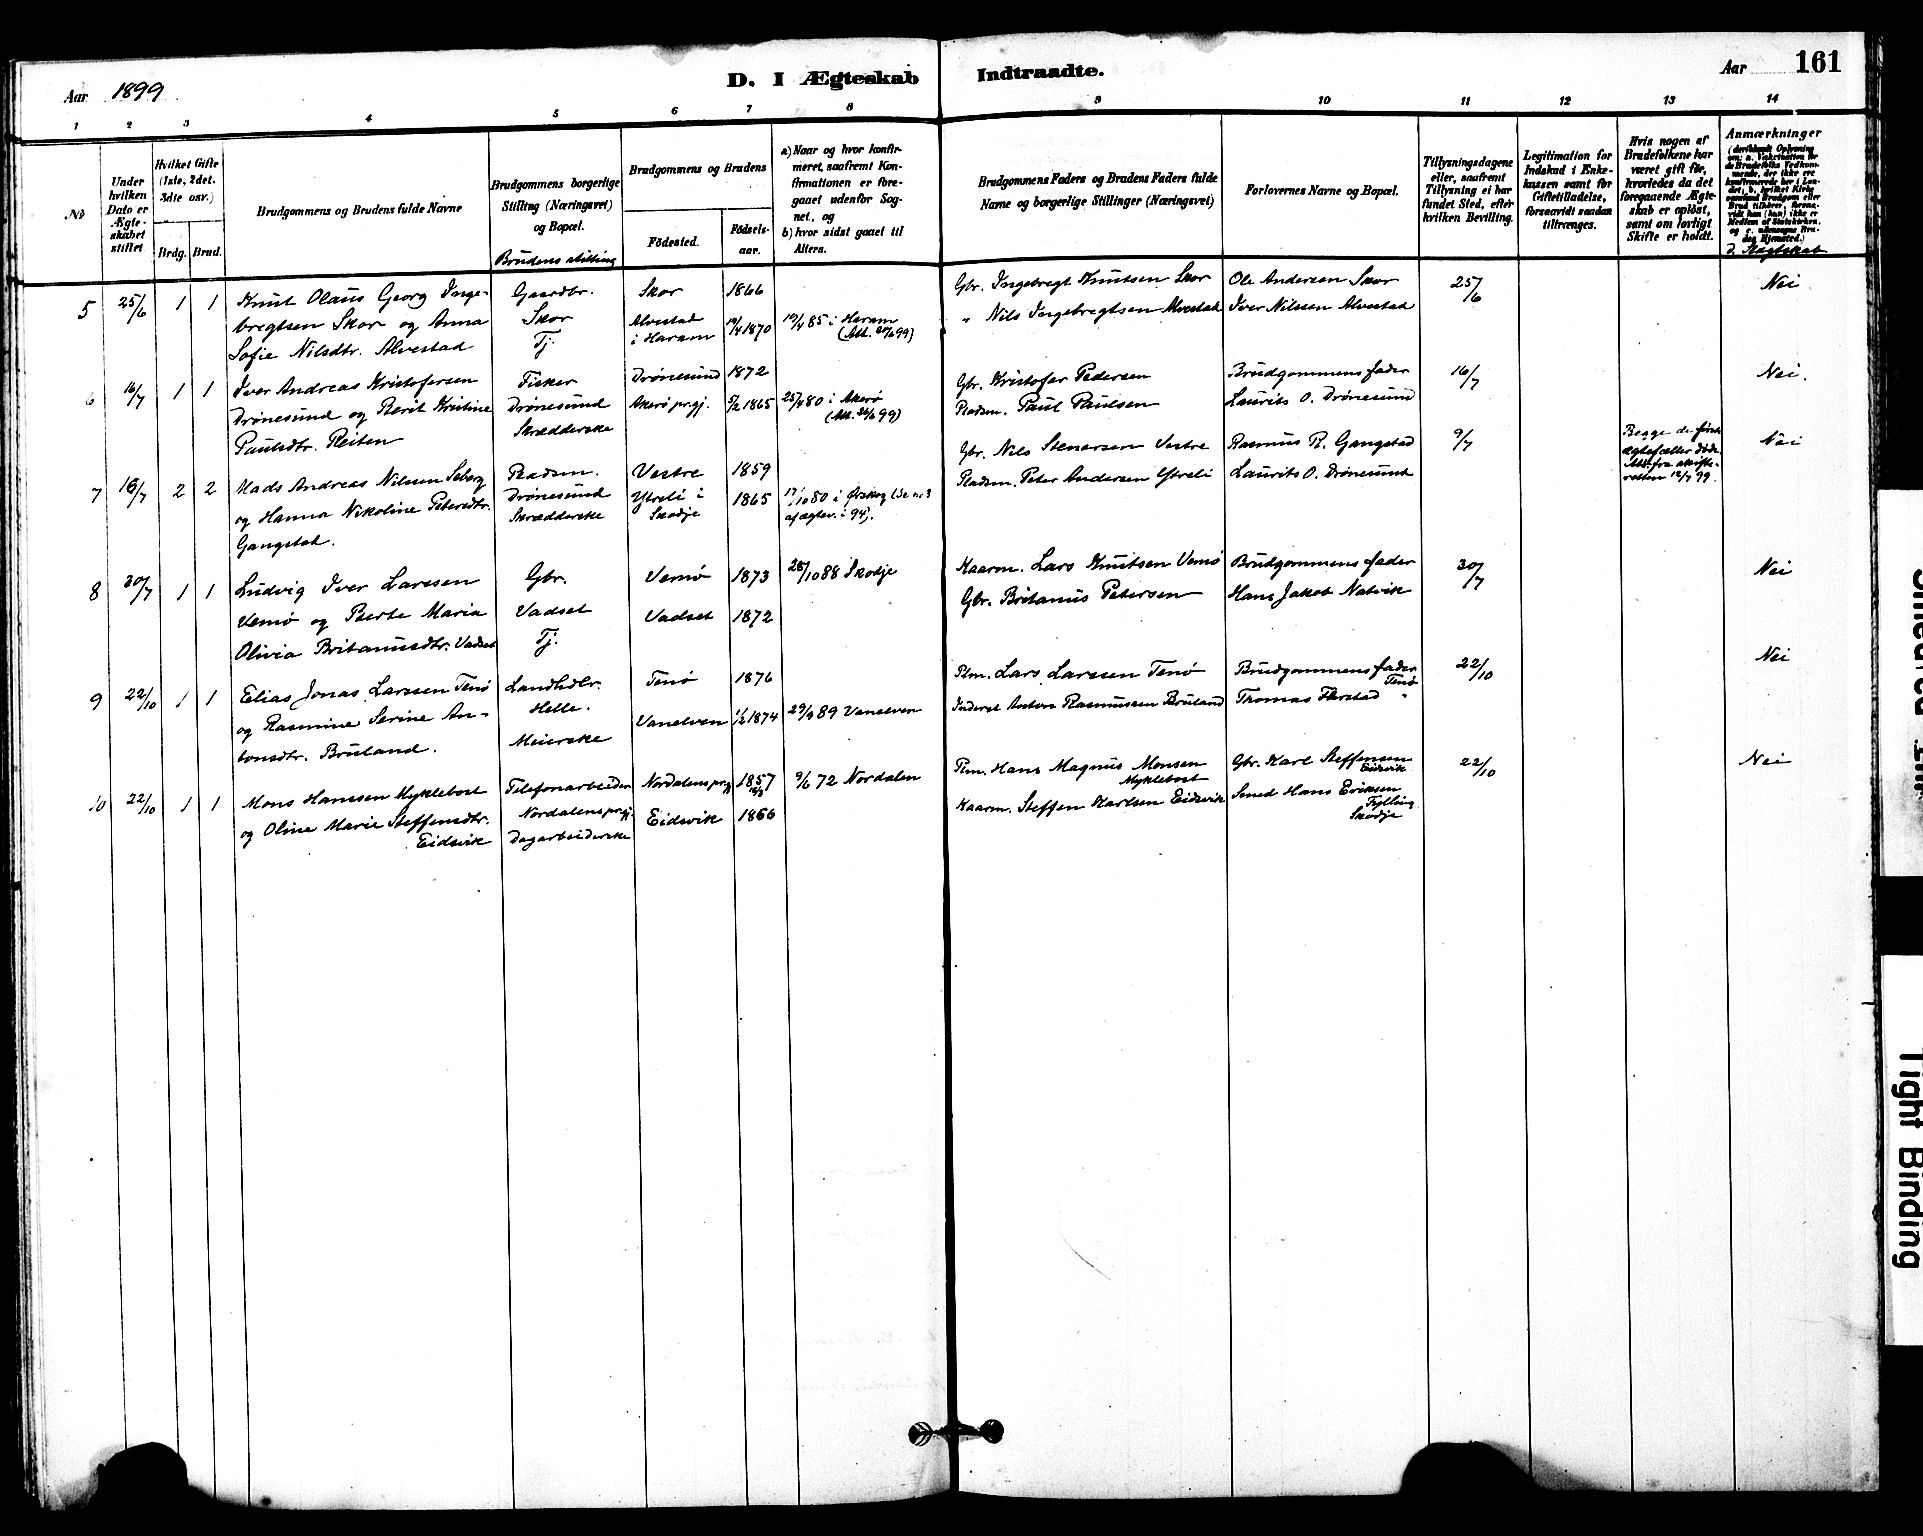 Aar 1899
D. I Ægteskab Indtraadte.
Aar 161
1 2 3 4 5 6 7 8 9 10 11 12 13 14
No
Under hvilken Dato er Ægteskabet stiftet
Hvilket Gifte (1ste, 2det. 3dte osv.)
Brdg. Brud.
Brudgommens og Brudens fulde Navne
Brudgommens borgerlige Stilling (Næringsvei) og Bopæl.
Brudens stilling
Brudgommens og Brudens
Födested. Födselsaar.
a) Naar og hvor konfirmeret, saafremt Konfirmationen er foregaaet udenfor Sognet, og
b) hvor sidst gaaet til Alters.
Brudgommens Faders og Brudens Faders fulde Navne og borgerlige Stillinger (Næringsvei)
Forlovernes Navne og Bopæl.
Tillysningsdagene eller, saafremt Tillysning ei har fundet Sted, efter hvilken Bevilling.
Legitimation for Indskud i Enkekassen samt for Giftetilladelse, forsaavidt saadan tiltrænges.
Hvis nogen af Brudefolkene har været gift før, hvorledes da det foregaaende Ægteskab er oplöst, samt om lovligt Skifte er holdt.
Anmærkninger
2. Slægtskab
5 25/6 1 1 Knut Olaus Georg Inge- Gaardbr. Skor 1866 Gbr. Ingebregt Knutsen Skor Ole Andersen Skor 25/6 Nei
bregtsen Skor og Anna Skor Alvestad 19/4 1870 19/4 85 i Haram „ Nils Ingebregtsen Alvestad Iver Nilssen Alvestad
Sofie Nilsdtr. Alvestad Tj. i Haram
6 16/7 1 1 Iver Andreas Kristofersen Fisker Drönesund 1872 Gbr. Kristofer Pedersen Brudgommens fader 16/7 Nei.
Drönesund og Berit Kristine Drönesund Akerö prgj. 1865 25/4 80 i Akerö Pladsm. Paul Paulsen Laurits O. Drönesund
Paulsdtr. Reiten Skrædderske
7 16/7 2 2 Mads Andreas Nilssen Seberg Pladsm. Vestre 1859 Gbr. Nils Stenersen Vestre Rasmus R. Gangstad 9/7 Begge de förste ægtefæller döde. Att. fra skifteretten 12/7 99. Nei
og Hanna Nikoline Petersdtr. Drönesund Ytreli i 1865 17/10 80 i Ørskog (Se nr 3 Pladsm. Peter Andersen Ytreli Laurits O. Drönesund
Gangstad. Skrædderske Skodje af ægtev. i 94).
8 30/7 1 1 Ludvig Iver Larssen Gbr. Vemö 1873 28/10 88 Skodje Kaarm. Lars Knutsen Vemö Brudgommens fader 30/7 Nei
Vemö og Berte Maria Vadset Vadset 1872 Gbr. Britanus Petersen Hans Jakob Natvik
Olivia Britanusdtr. Vadset Tj.
9 22/10 1 1 Elias Jonas Larssen Tenö Landhdlr. Tenö 1876 Plm. Lars Larssen Tenö Brudgommens fader Tenö 22/10 Nei
og Rasmine Serine An- Helle. Vanelven 1/2 1874 29/9 89 Vanelven Inderst Anton Rasmussen Bruland Thomas Flerstad „
tonsdtr. Bruland. Meierske
10 22/10 1 1 Mons Hanssen Myklebost Telefonarbeider Nordalens prgj 1857 9/6 72 Nordalen Plm. Hans Magnus Monsen Myklebost Gbr. Karl Steffensen Eidsvik 22/10 Nei
og Oline Marie Steffensdtr. Nordalens prgj. Eidsvik 1866 Kaarm. Steffen Karlsen Eidsvik Smed Hans Eriksen Fylling Skodje
Eidsvik Dagarbeiderske
Tight Binding